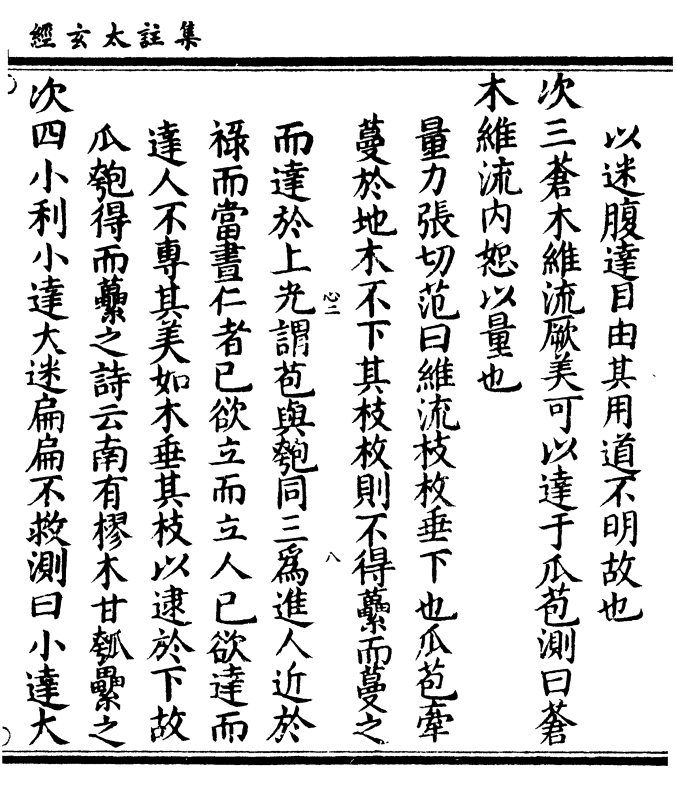 集註太玄經
以迷腹達目由其用道不明故也
次三蒼木維流厥美可以達于瓜苞測曰蒼
木維流內恕以量也
量力張切范曰維流枝枚垂下也瓜苞牽
蔓於地木不下其枝枚則不得虆而蔓之
而達於上光謂苞與匏同三為進人近於
祿而當晝仁者已欲立而立人已欲達而
達人不專其美如木垂其枝以逮於下故
瓜匏得而虆之詩云南有樛木甘瓠纍之
次四小利小達大迷扁扁不救測曰小達大
心二
八